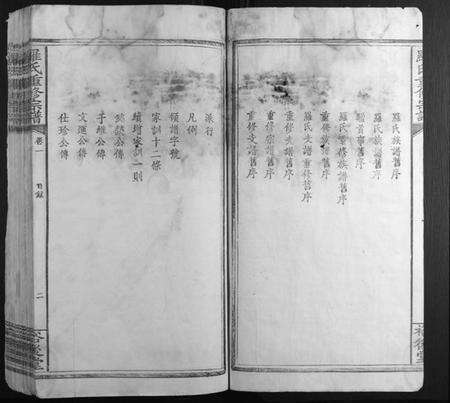 羅氏重修宗譜
羅氏族譜舊序
羅氏族譜舊序
羅氏重修族譜舊序
羅氏族譜重修舊序
重修宗譜舊序
重修族譜舊序
重修宗譜舊序
派行
凡例
領譜字號
家訓十二條
續增家訓一則
公傳
子維公傳
文運公傳
仕珍公傳
羅氏重修宗譜
卷一
目錄
二
裕後堂
裕後堂